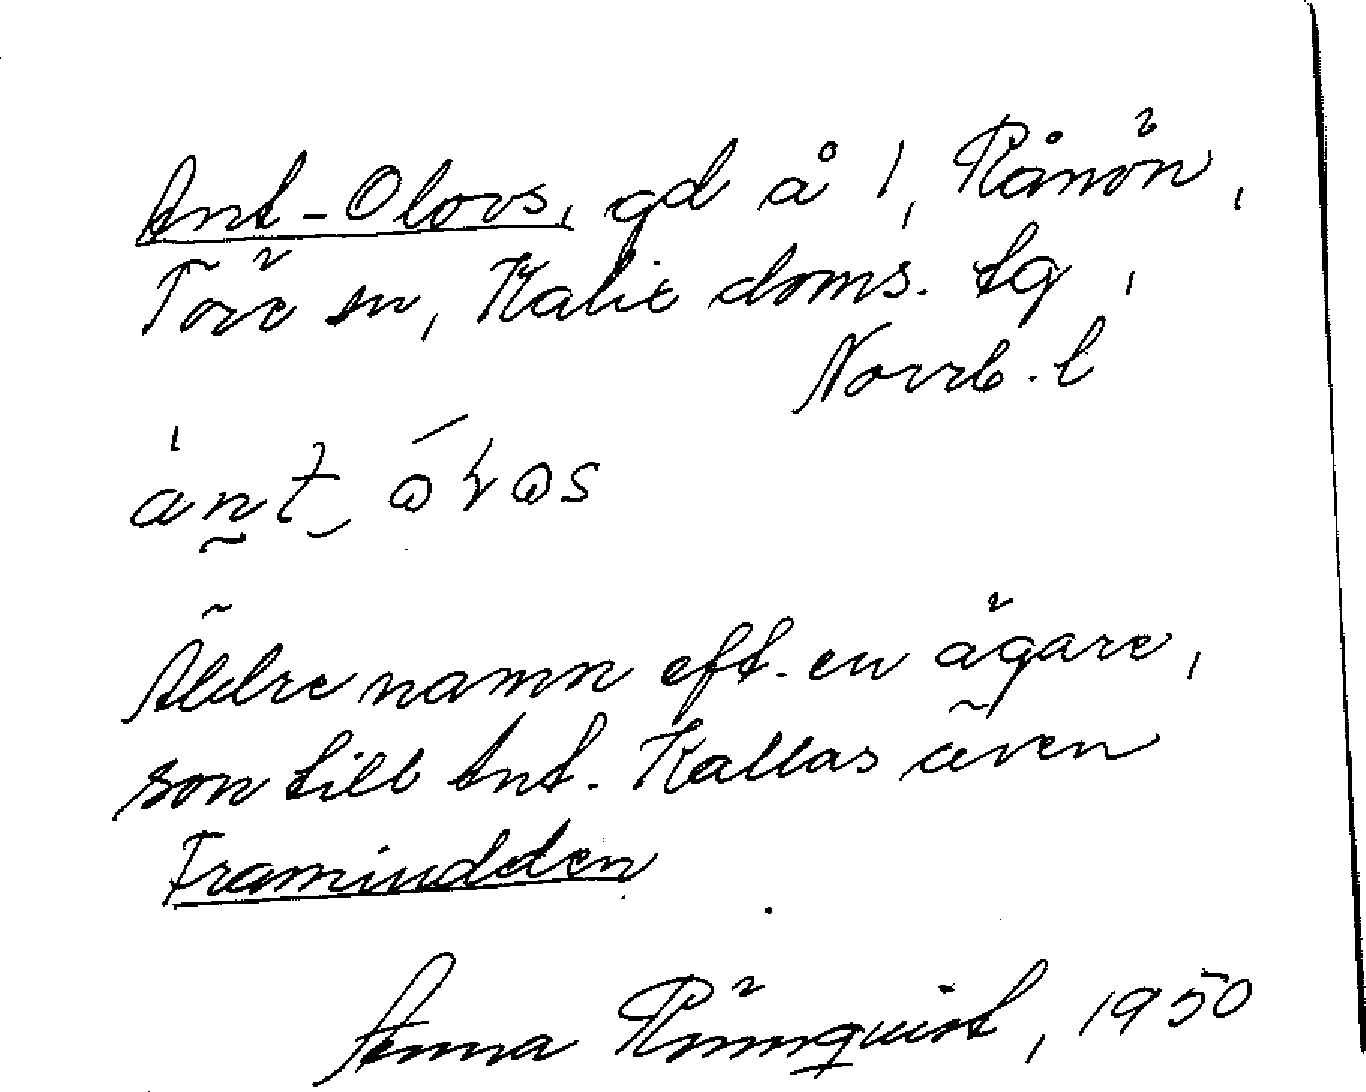 Ant-Olovs, gd å 1, Rånön,
Töre sn, Kalix doms. tg,
Norrb. l
Äldre namn eft. en ägare,
son till Ant. Kallas även
Framiudden
Anna Rönnquist, 1950